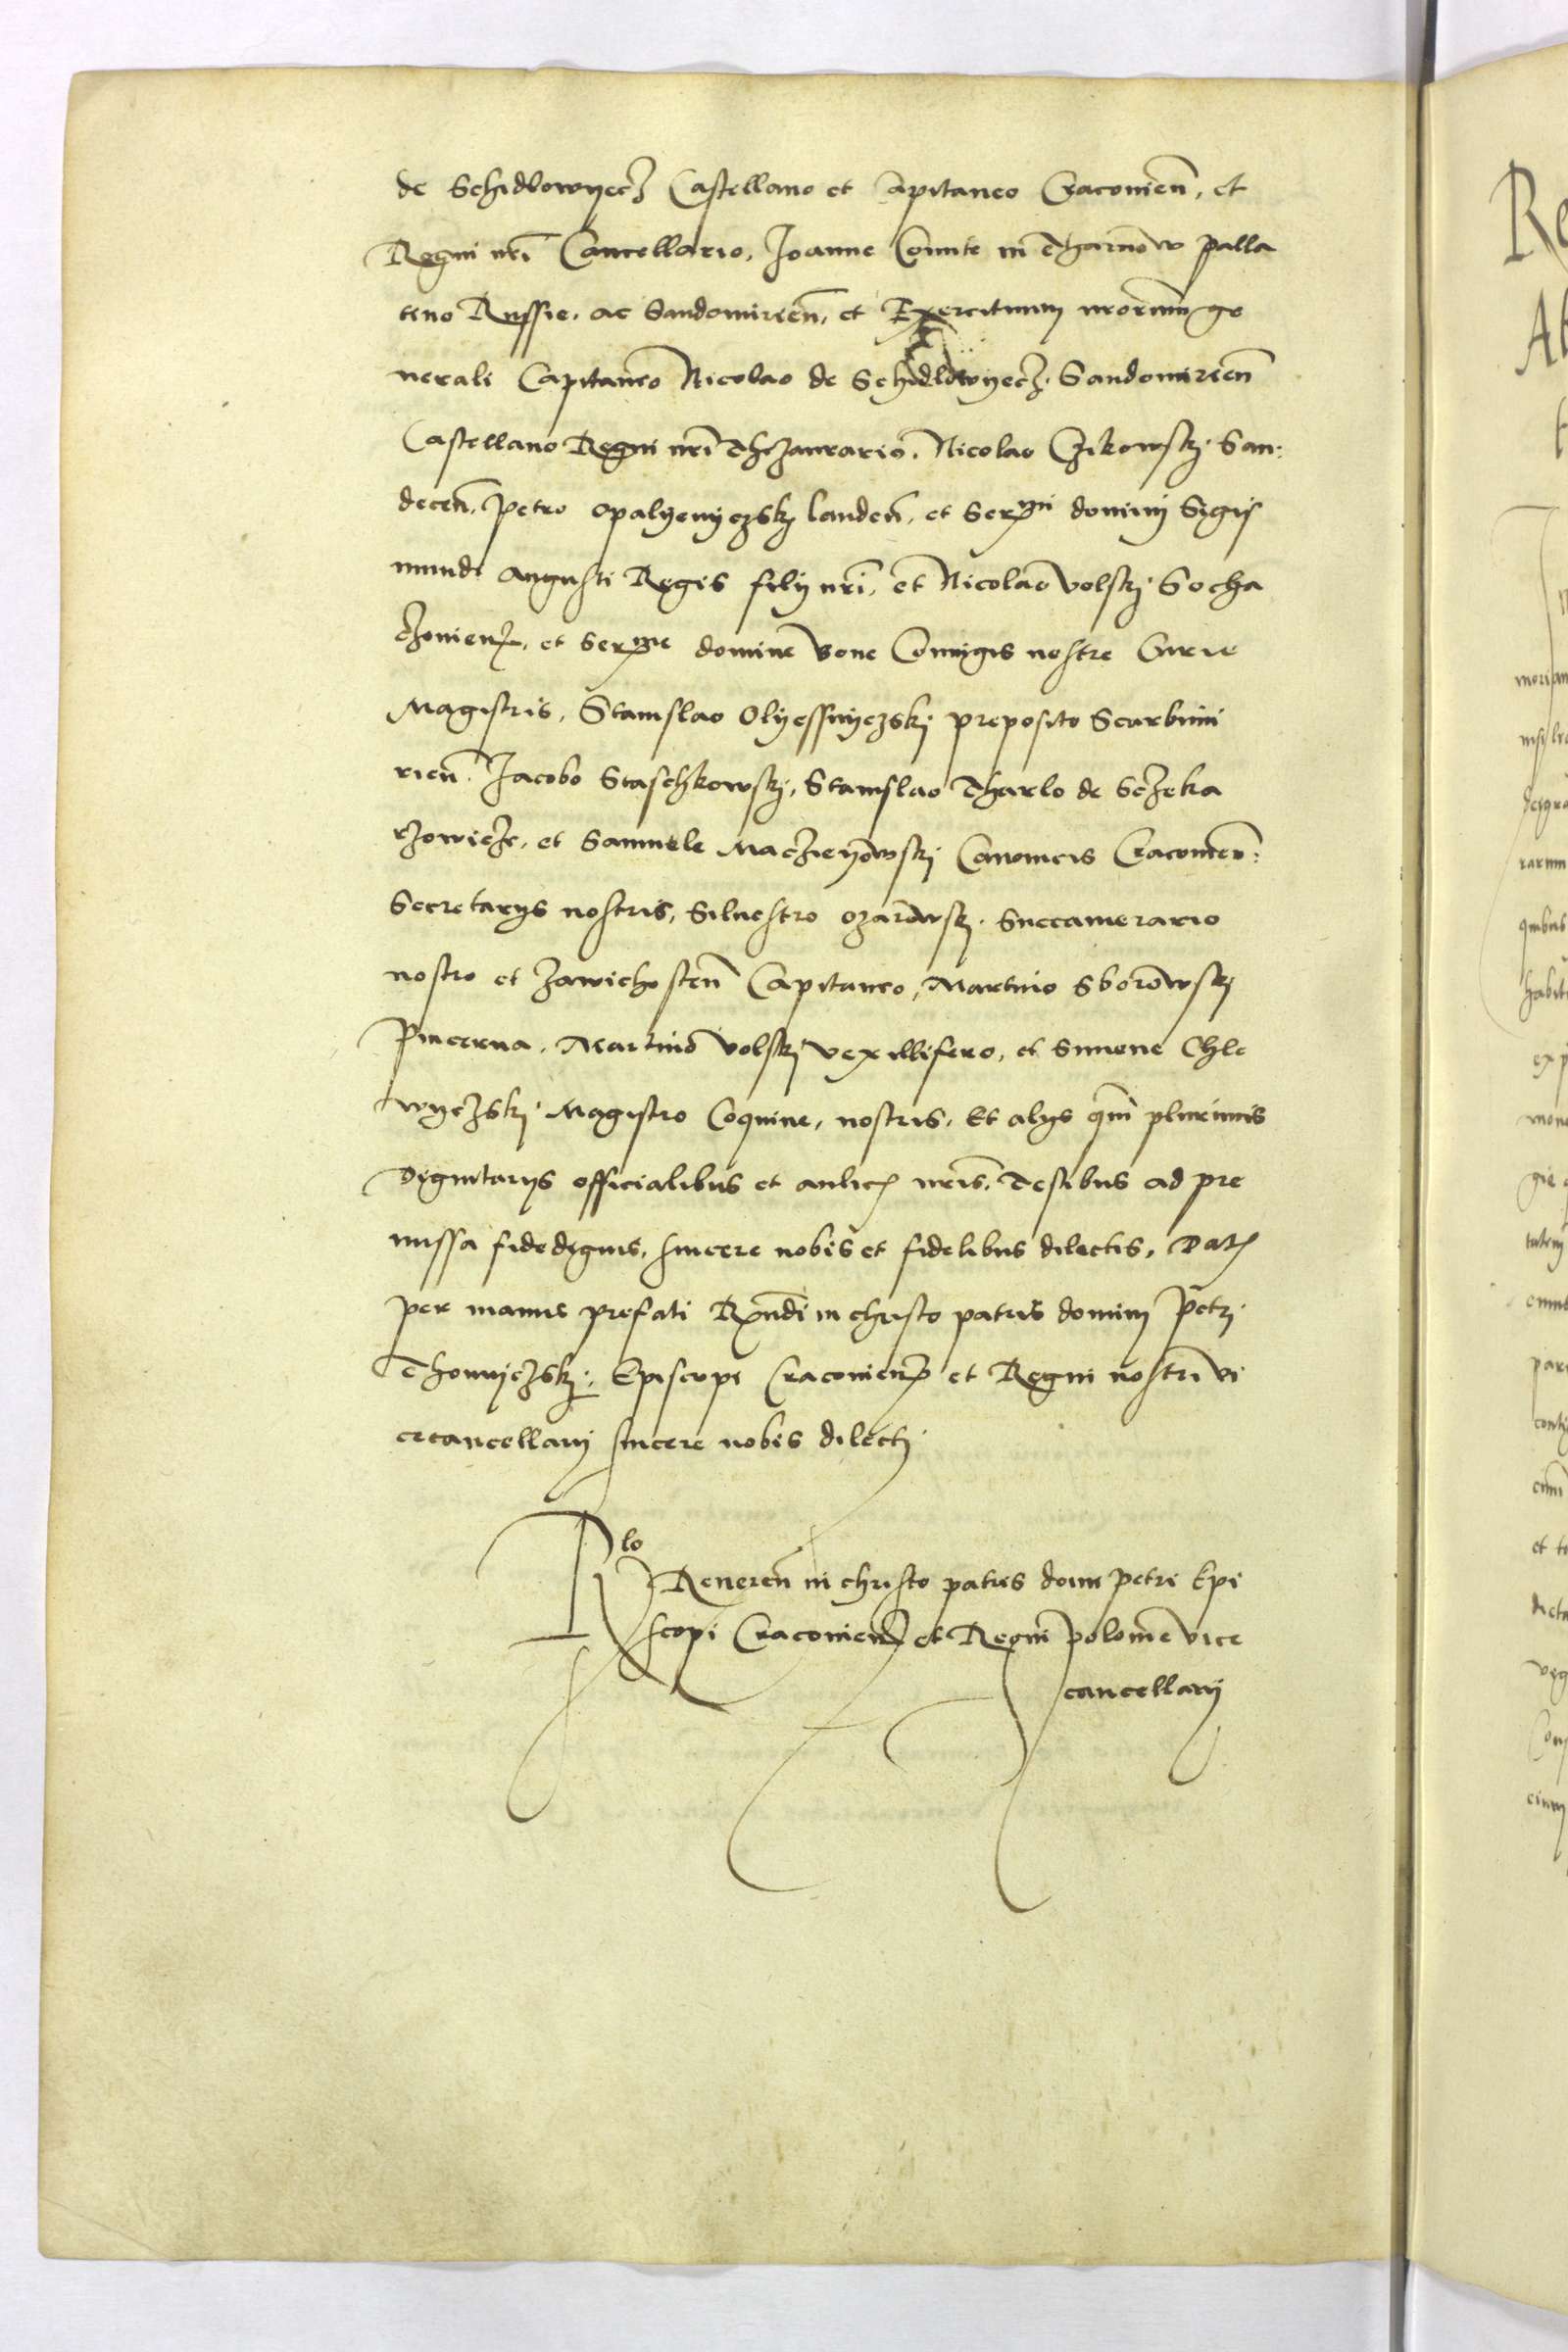 de Schidlowyecz Castellano et Capitaneo Cracovien̄, et
Regni nr̄i Cancellario, Joanne Comite in Tharnow Palla
tino Russie, ac Sandomirien̄, et Exercituum nrorum ge
nerali Capitaneo Nicolao de Schidlowyecz Sandomirien̄
Castellano Regni nr̄i Thezaurario, Nicolao Czikowskj San:
decen̄, Petro Opalyenyczskj Landen̄, et Serᵐⁱ dominj Sigis
mundi Augusti Regis filij nr̄i, et Nicolao Volskj Socha
czovien, et Serᵐᵉ domine Bone Coniugis nostre Curie
Magistris, Stanislao Olyessnyczskj preposito Scarbimi
rien̄. Jacobo Staschkowskj, Stanislao Tharlo de Sczeka
rzovicze, et Samuele Macziejowskj Canonicis Cracovien:
Secretarijs nostris, Silvestro Ozarowskj Succamerario
nostro et Zawichosten̄ Capitaneo, Martino Sborowskj
Pincerna, Martino Volskj Vexillifero, et Simone Chle
wyczskj Magistro Coquine, nostris, Et alijs qm̄ plurimis
Dignitarijs officialibus et aulicis nr̄is, Testibus ad pre
missa fidedignis, sincere nobis et fidelibus dilectis, Datum
per manus prefati Rn̄di in christo patris dominj Petrj
Thomyczskj, Episcopi Cracovien et Regni nostri Vi
cecancellarij sincere nobis dilectj
Rlo
Reveren̄ in christo patris domi Petri Epi
scopi Cracovien et Regni Polonie Vice
cancellarij